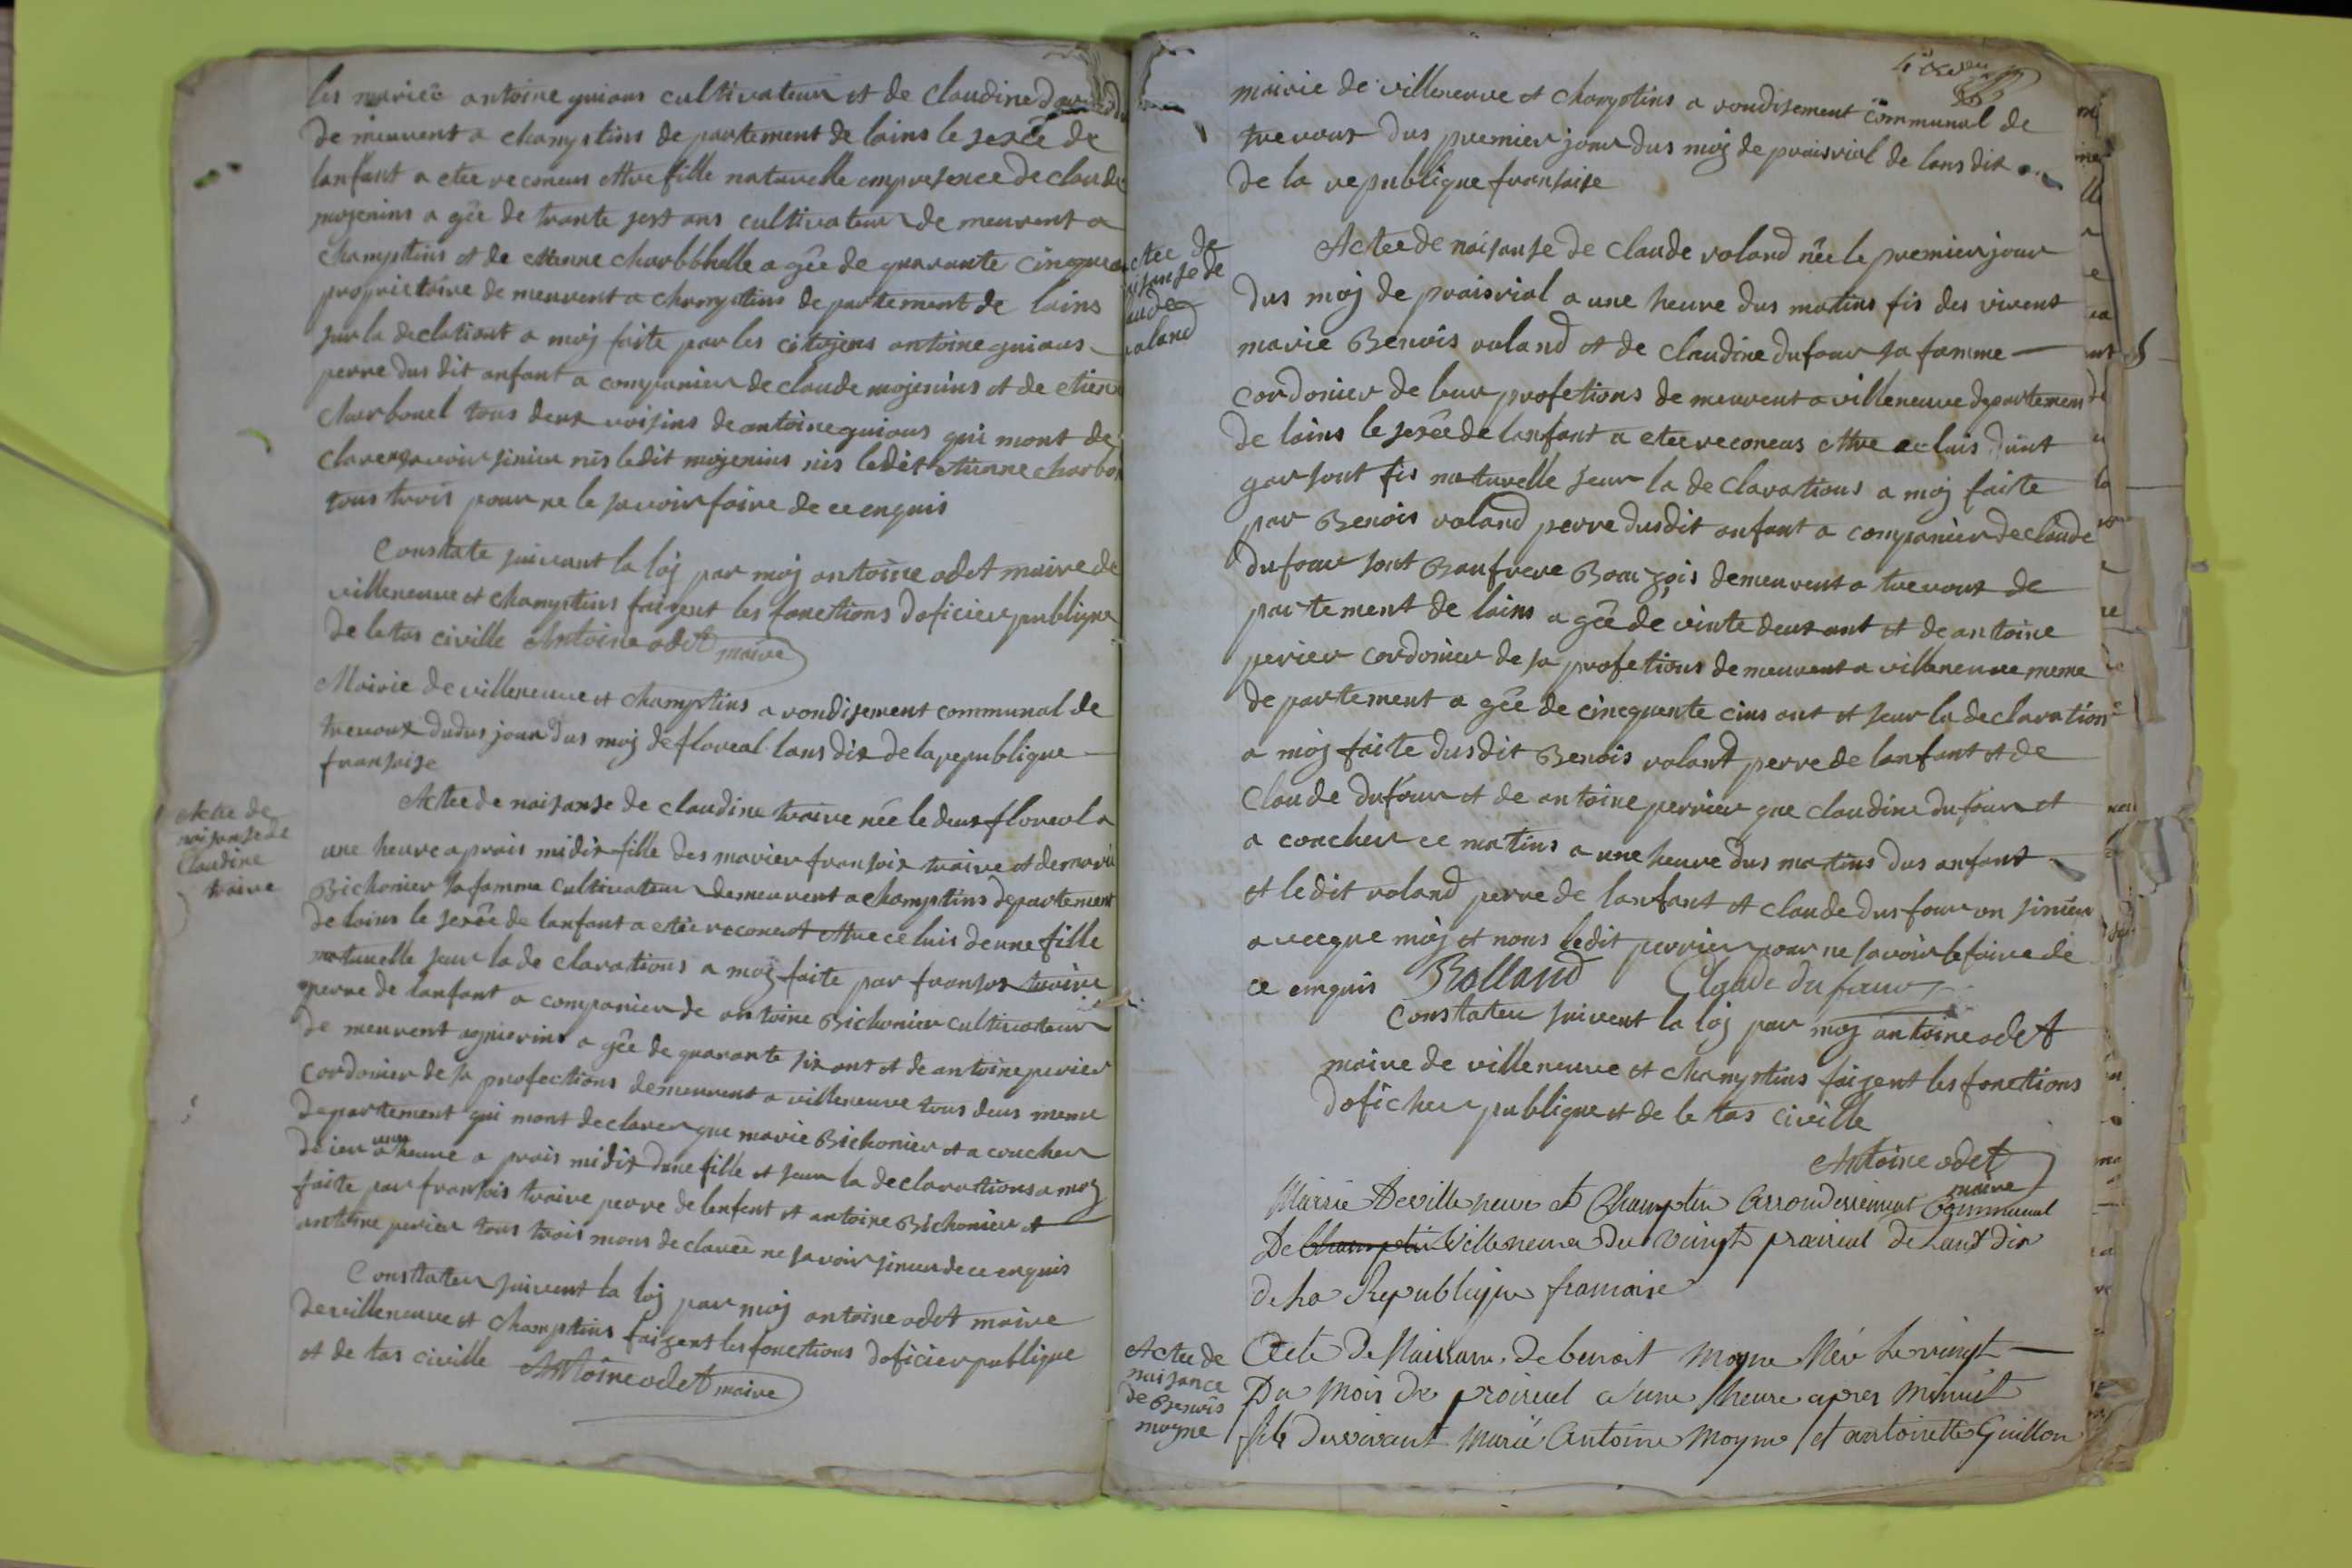 les mariée antoine guious cultivateur et de claudine
de meurent a champtins de partement de lains le sexée de
lanfant a etee reconeus ettre fille naturelle empresence de claude
mojenins a gée de trante sest ans cultivateur de meurent a
champtins et de etienne charbbhelle a gée de quarante cinque
proprietaire de meurent a champtins de partement de lains
sur la declationt a moj faite par les citojens antoine guious
perre dus dit anfant a companier de claude mojenins et de etiene
charbonel tous deux voisins de antoine guious qui mont de
clarer savoir sinier nis ledit mojenins nis ledit etienne charbon
tous trois pour ne le savoir faire de ce enquis
Constate suivant la loj par moj antoine odet maire de
villeneuve et champtins faizent les fonctions doficier publique
de letas civille Antoine odet maire
Mairie de villeneuve et champtins a rondisement communal de
trevoux dudus jour dus moj de floreal lans dix de la republique
fransaise
Actee de
naisanse de
Claudine
traive
Actee de naisanse de claudine traive née le deus floreal a
une heure a prais midis fille des marier fransois traive et de marie
Bichonier sa famme cultivateur demeurent a champtins departement
de lains le sexée de lanfant a etée reconeut ettre ce luis de une fille
naturelle seur la de clarations a moj faite par fransos traive
perre de lanfant a companier de antoine Bichonier cultivateur
de meurent aguierins a gée de quarante six ant et de antoine perier
cordonier de sa profections demeurent a villeneuve tous deus meme
departement qui mont declarer que marie Bichonier et a coucher
de ier a une heure a prais midis dune fille et seur la declarations a moj
faite par fransois traive perre de lenfent et antoine Bichonier et
antoine perier tous trois mons declarée ne savoir sinier de ce enquis
Constater suivent la loj par moj antoine odet maire
de villeneuve et champtins faizent les fonctions doficier publique
et de tas civille Antoine odet maire
mairie de villeneuve et champtins a rondisement communal de
trevoux dus premier jour dus moj de praisrial de lans dix
de la republique fransaise
actee de
naisanse de
claude
roland
Actee de naisanse de Claude roland née le premier jour
dus moj de praisrial a une heure dus matins fis des vivent
marie Benois roland et de claudine dufour sa famme
cordonier de leur profetions de meurent a villeneuve departement
de lains le sexée de lanfant a etee reconeus ettre ce luis dunt
garsont fis naturelle seur la de clarations a moj faite
par Benois roland perre dusdit anfant a companier de claude
dufour sont Baufrere Bourgois demeurent a trevoux de
partement de lains a gée de vinte deux ant et de antoine
perier cordonier de sa profetions de meurent a villeneuve meme
de partement a gée de cincquente cins ant et seur la declaration
a moj faite dusdit Benois rolant perre de lanfant et de
Claude dufour et de antoine perrier que claudine dufour et
a coucher ce matins a une heure dus matins dus anfant
et ledit roland perre de lanfant et claude dus four on sinier
avecque moj et nons ledit perrier pour ne savoir le faire de
ce enquis Rolland Claude dufour
Constater suivent la loj par moj antoine odet
maire de villeneuve et champtins faizent les fonctions
dofichier publique et de le tas civille
Antoine odet
maire
Mairie De villeneuve et Champtin Arrondissement Communal
De Champtin Villeneuve Du vingt prairial de Lant dix
de La Republique francaise
Actee de
naisance
de Benois
moyne
Acte De Naissance de benoit Moyne Né Le vingt
Du Mois De prairial a une heure apres Minuit
fils Du vivant Marié Antoine Moyne et antoinette Guillon